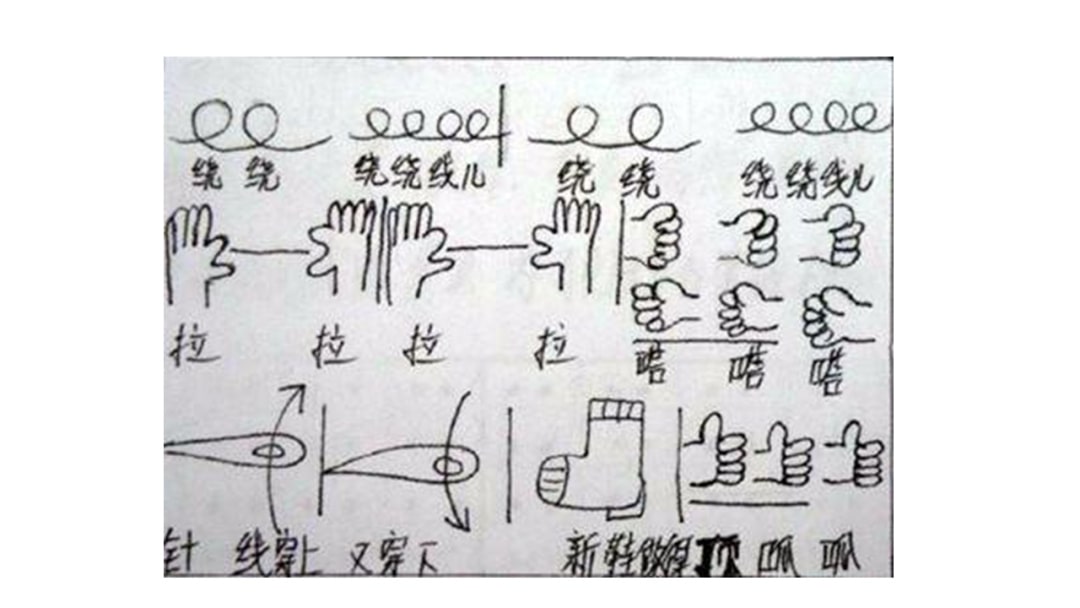 绕 绕 绕绕线儿 绕 绕 绕绕线儿
拉 拉 拉 拉 嗒 嗒 嗒
针 线穿上 又穿下 新鞋做得顶呱呱